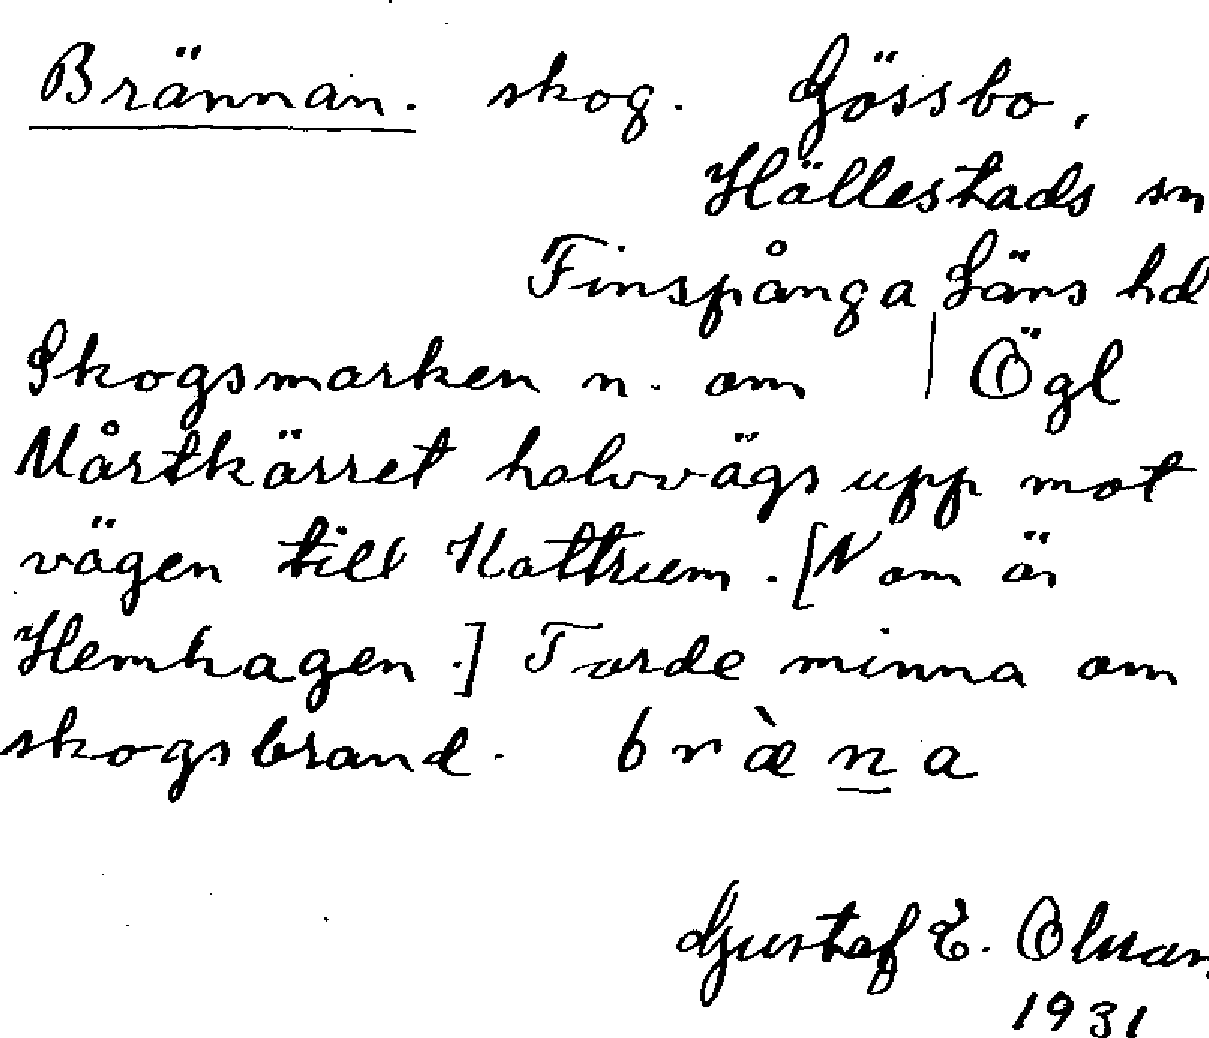 Brännan. skog. Gössbo,
Hällestads sn
Finspånga Läns hd
Skogsmarken n. om | Ögl
Mårtkärret halvvägs upp mot
vägen till Kattrum. [N om är
Hemhagen.] Torde minna om
skogsbrand. bræ̀na
Gustaf E. Olsson
1931